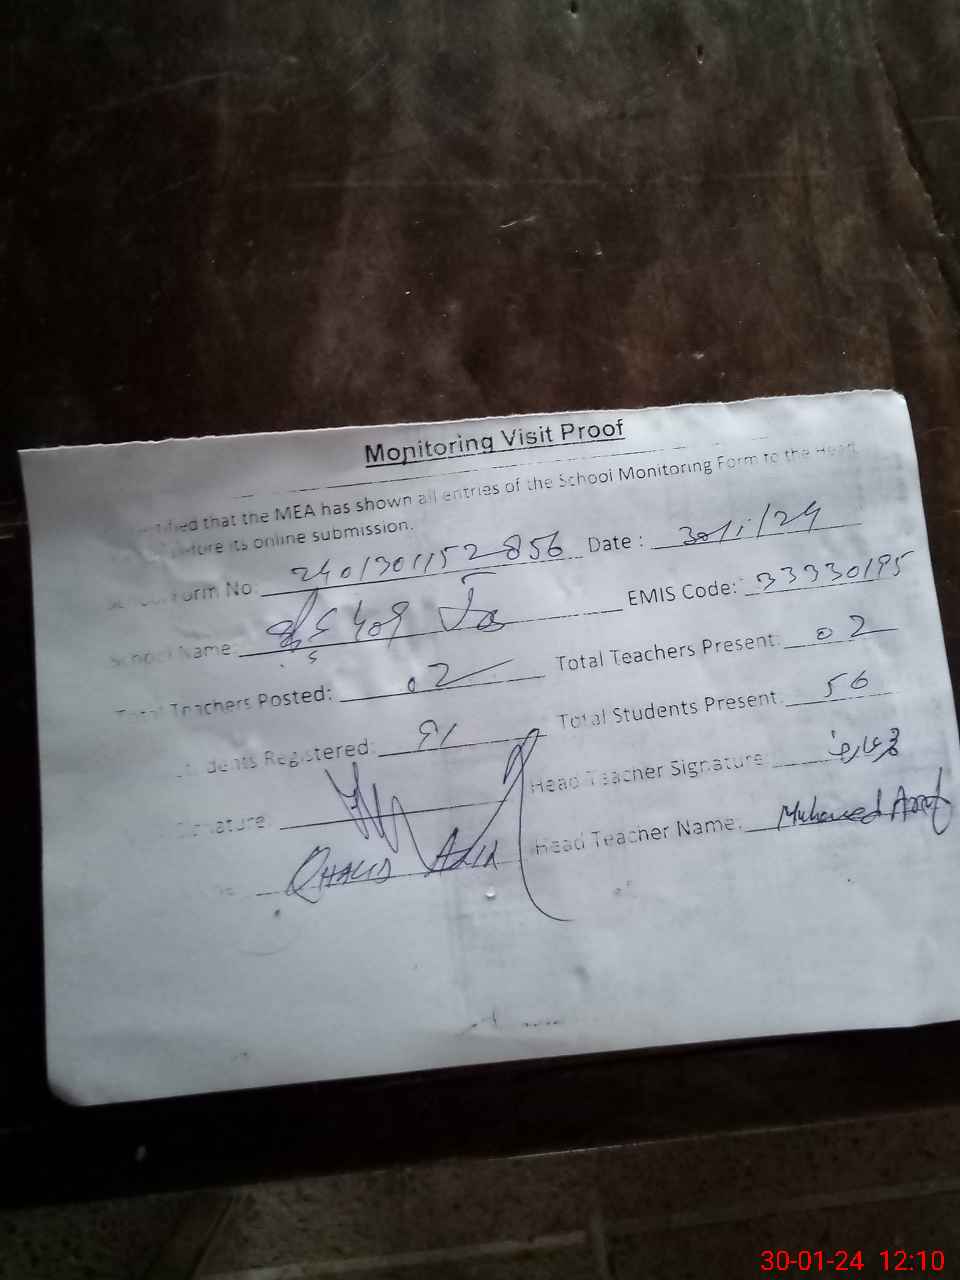 Monitoring Visit Proof
that the MEA has shown all entries of the School Monitoring Form to the Head
its online submission.
School Form No: 2401301152856 Date : 30/1/24
School Name: EMIS Code: 33330195
Total Teachers Posted: 02 Total Teachers Present: 02
Students Registered: 91 Total Students Present: 56
Signature Head Teacher Signature
KHALID AZIZ Head Teacher Name:
30-01-24 12:10